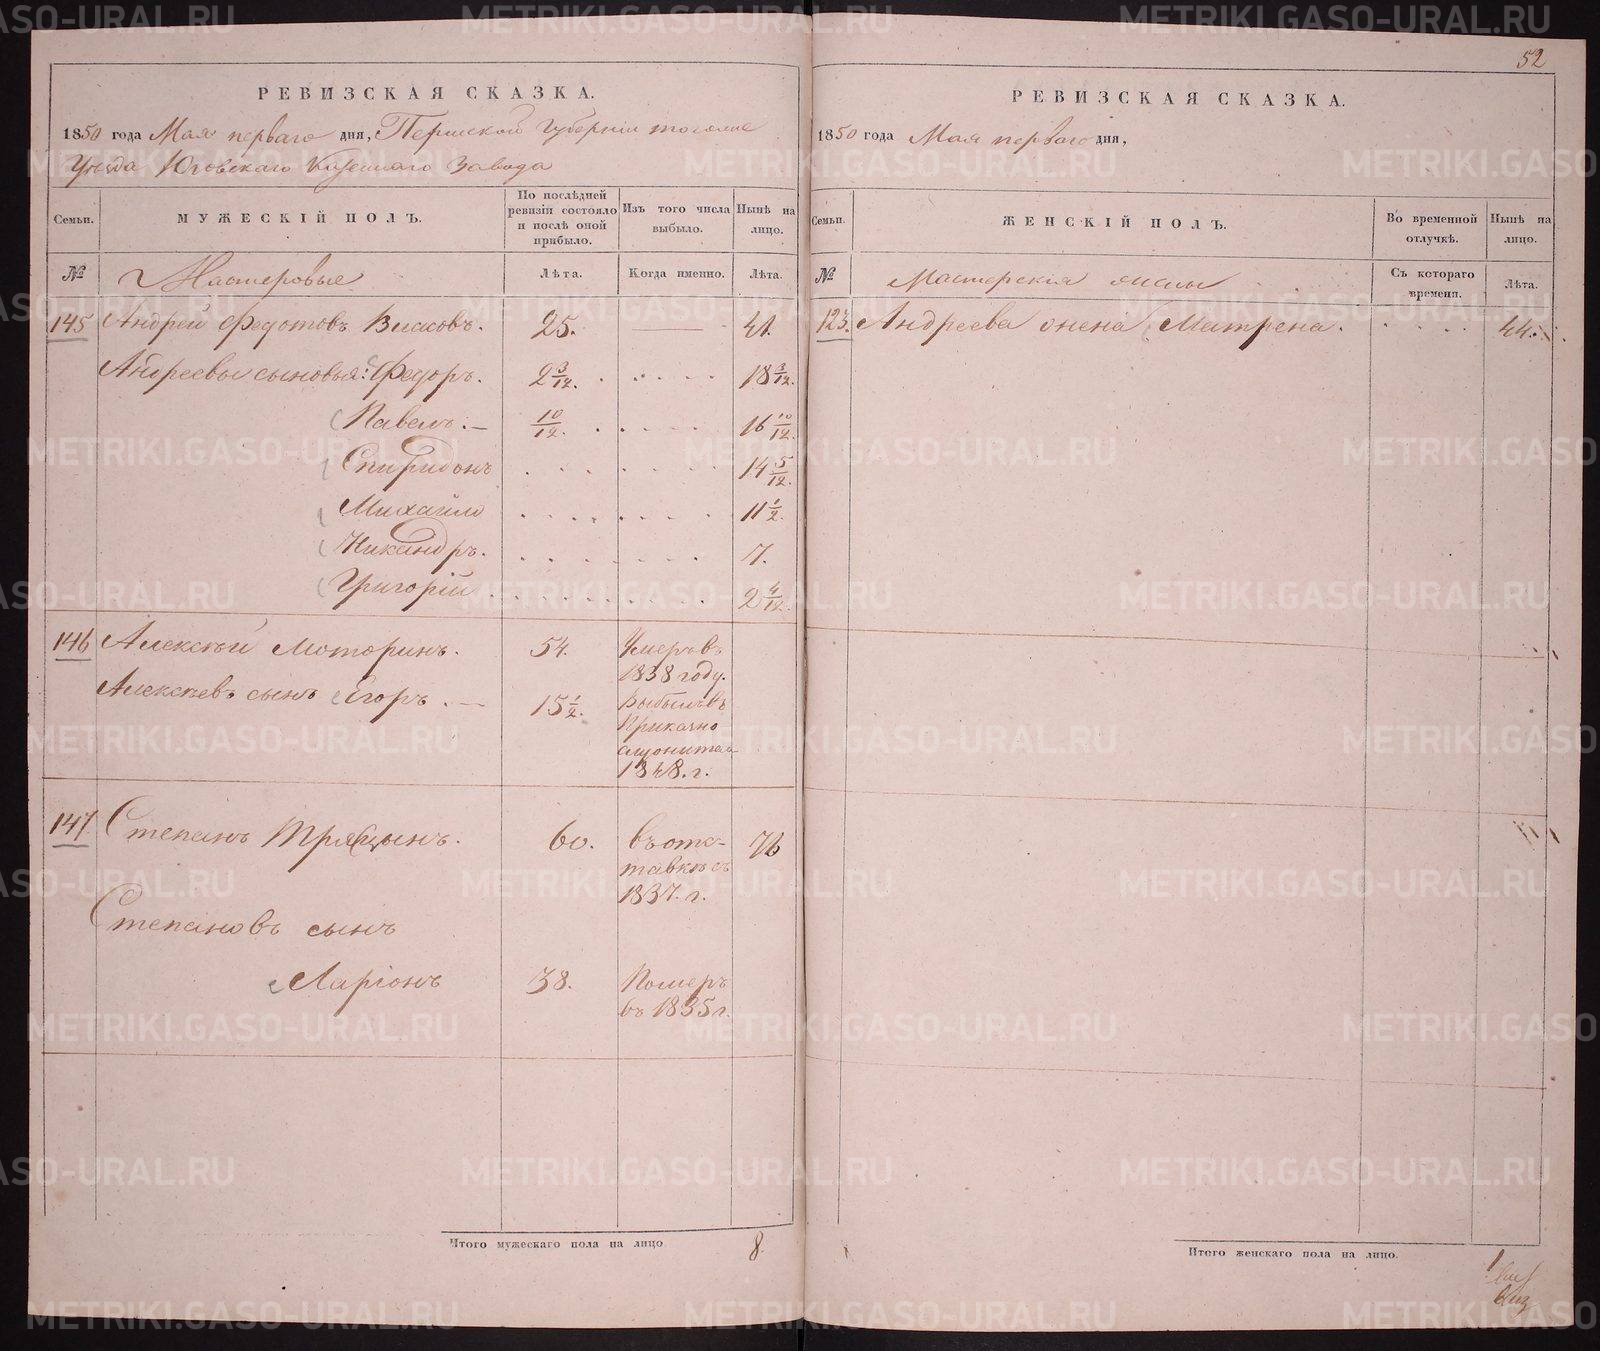 52
РЕВИЗСКАЯ СКАЗКА.
1850 года Мая перваго дня, Пермской Губерніи тогоже
Уѣзда Юговскаго Казеннаго Завода
Семьи. МУЖЕСКІЙ ПОЛЪ. По послѣдней ревизіи состояло и послѣ оной прибыло. Изъ того числа выбыло. Нынѣ на лицо.
№ Мастеровые Лѣта. Когда именно. Лѣта.
145 Андрей Федотовъ Власовъ. 25. 41.
Андреевы сыновья: Федоръ. 2 3/12. 18 3/12.
Павелъ. 10/12. 16 10/12.
Спиридонъ 14 5/12.
Михайло 11 1/2.
Никандръ. 7.
Григорій 2 4/12.
146 Алексѣй Моторинъ. 54. Умеръ въ
1838 году.
Алексѣевъ сынъ Егоръ. 15 1/2. Выбылъ въ
1848. г.
147 Степанъ Тряцынъ. 60. въ отс-
тавкѣ съ
1837. г.
76
Степановъ сынъ
Ларіонъ 38. Померъ
въ 1835 г.
Итого мужескаго пола на лицо 8.
РЕВИЗСКАЯ СКАЗКА.
1850 года Мая перваго дня,
Семьи. ЖЕНСКІЙ ПОЛЪ. Во временной отлучкѣ. Нынѣ на лицо.
№ Мастерскія жены Съ котораго времени. Лѣта.
123. Андреева жена Матрена. 44.
Итого женскаго пола на лицо. 1
METRIKI.GASO-URAL.RU